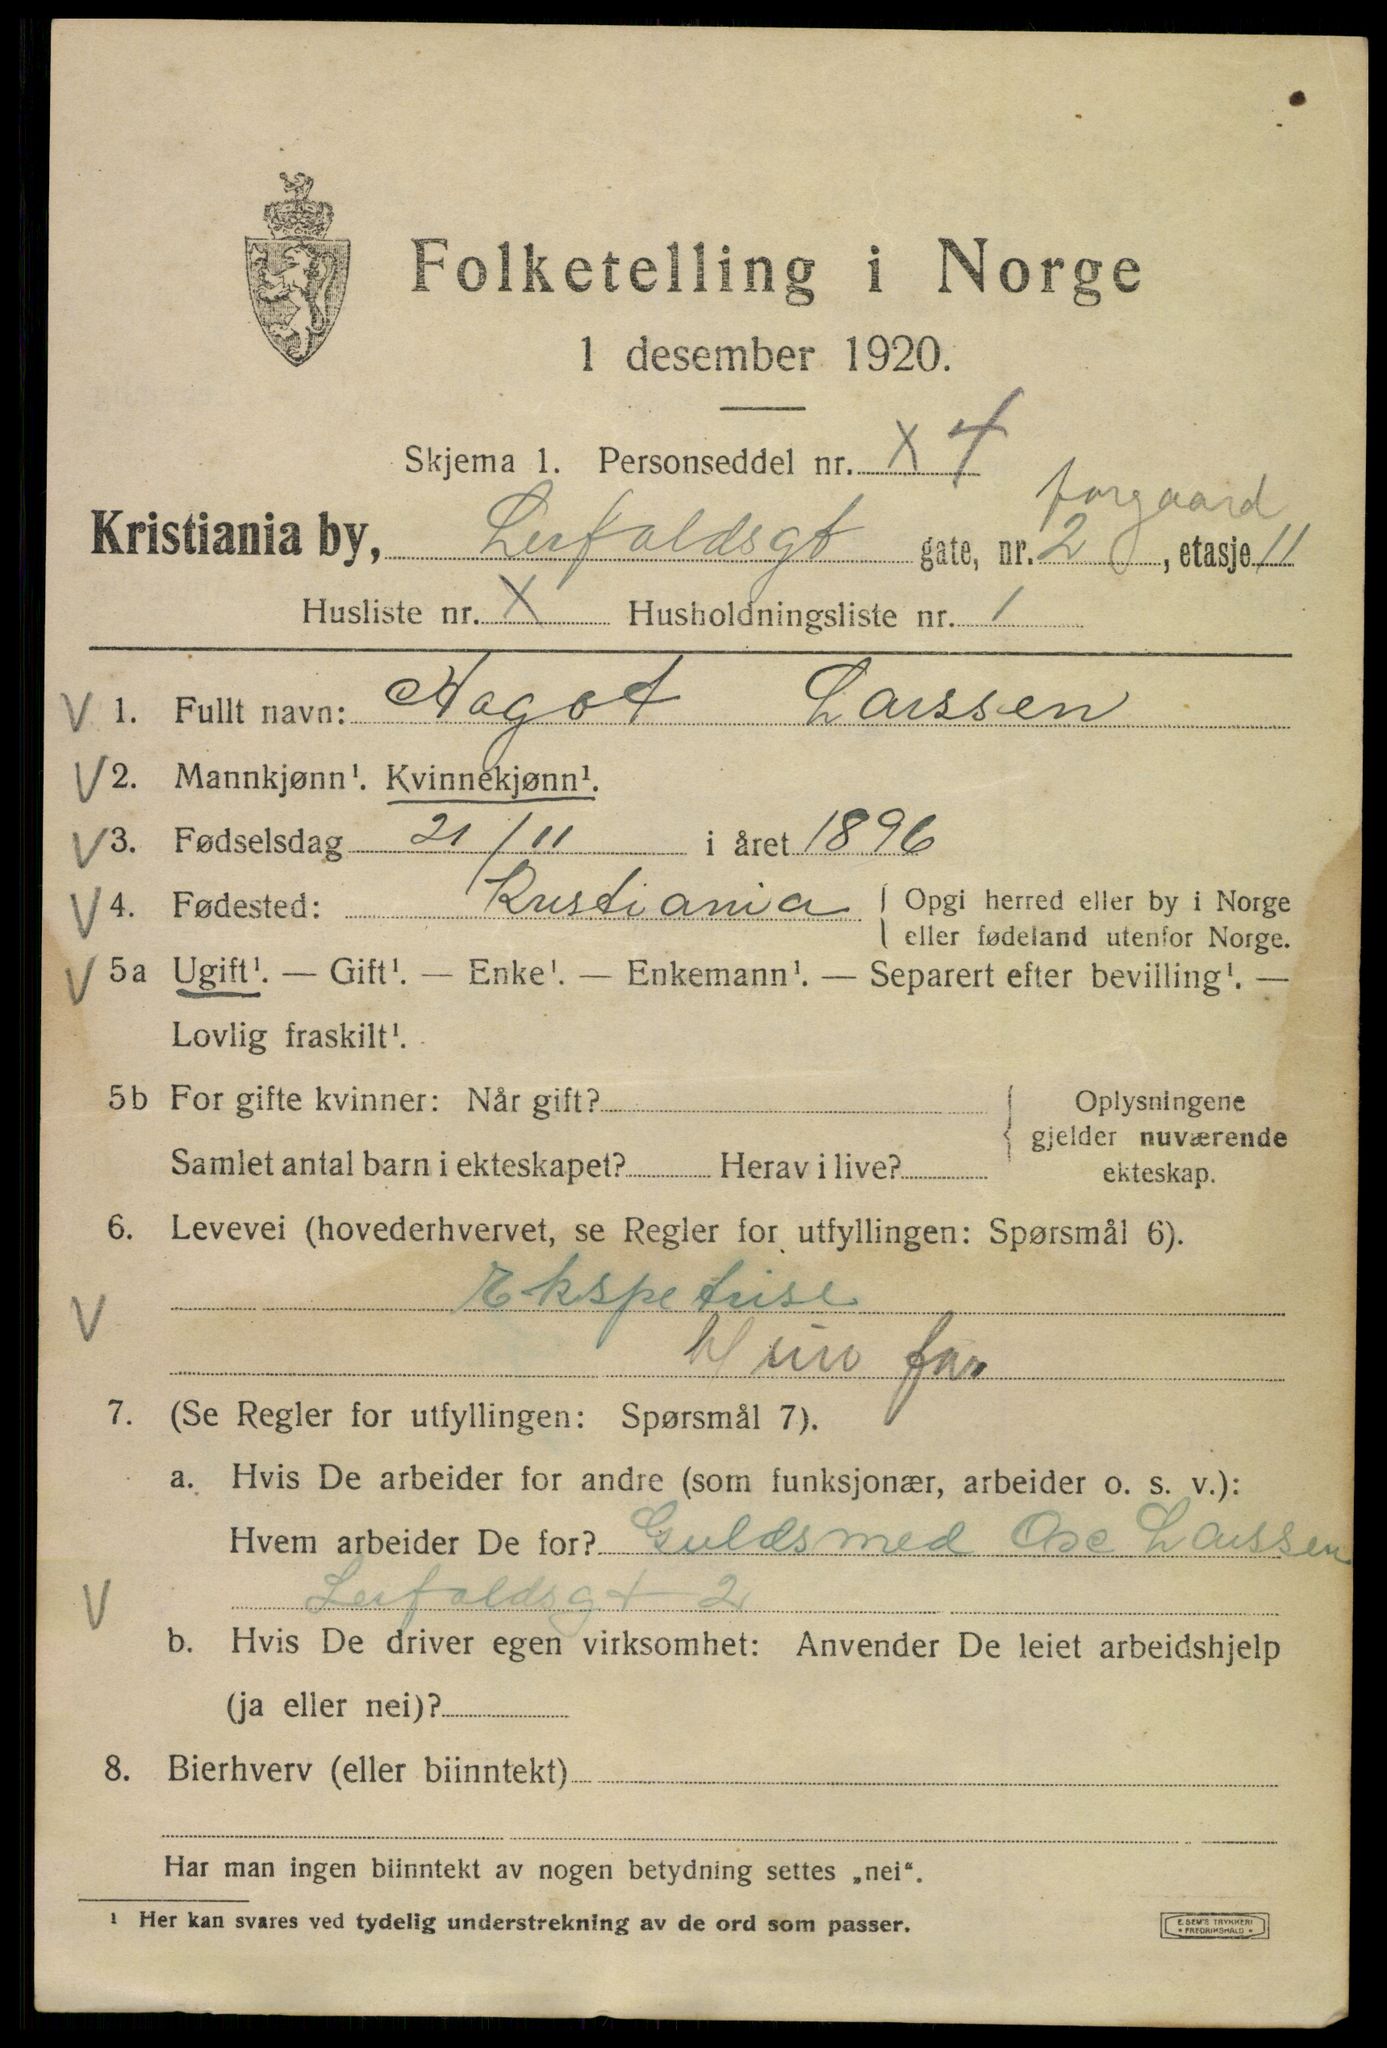 Folketelling i Norge
1 desember 1920.
Skjema 1. Personseddel nr. X 4
forgaard
Kristiania by, Leirfaldsgt gate, nr. 2, etasje 11
Husliste nr. X Husholdningsliste nr. 1
V 1. Fullt navn: Aagot Larssen
V 2. Mannkjønn¹. Kvinnekjønn¹.
V 3. Fødselsdag 21/11 i året 1896
V 4. Fødested: Kristiania { Opgi herred eller by i Norge
eller fødeland utenfor Norge.
V 5a Ugift¹. — Gift¹. — Enke¹. — Enkemann¹. — Separert efter bevilling¹. —
Lovlig fraskilt¹.
5b For gifte kvinner: Når gift? { Oplysningene
gjelder nuværende
Samlet antal barn i ekteskapet? Herav i live? ekteskap.
6. Levevei (hovederhvervet, se Regler for utfyllingen: Spørsmål 6).
V Ekspetrise
far
7. (Se Regler for utfyllingen: Spørsmål 7).
a. Hvis De arbeider for andre (som funksjonær, arbeider o. s. v.):
Hvem arbeider De for? Guldsmed Osc Larssen
V Leirfaldsgt 2
b. Hvis De driver egen virksomhet: Anvender De leiet arbeidshjelp
(ja eller nei)?
8. Bierhverv (eller biinntekt)
Har man ingen biinntekt av nogen betydning settes „nei“.
¹ Her kan svares ved tydelig understrekning av de ord som passer.
E. SEM'S TRYKKERI
* FREDRIKSHALD *